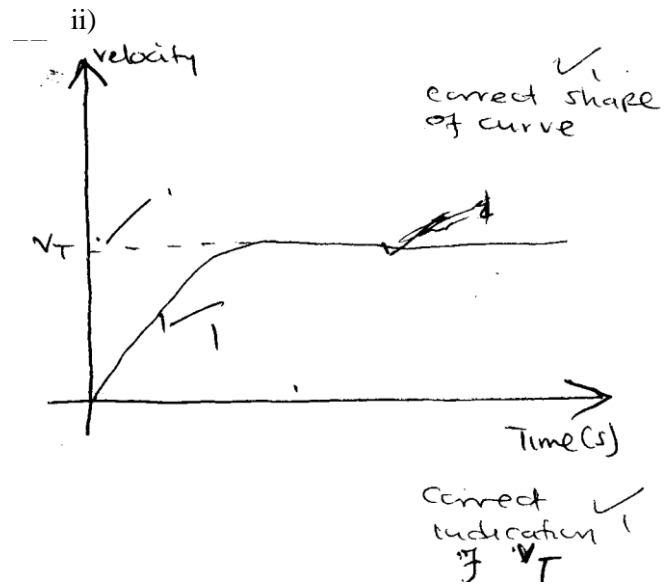 ii)
velocity
correct shape
of curve
VT
Time(s)
correct
indication
of VT